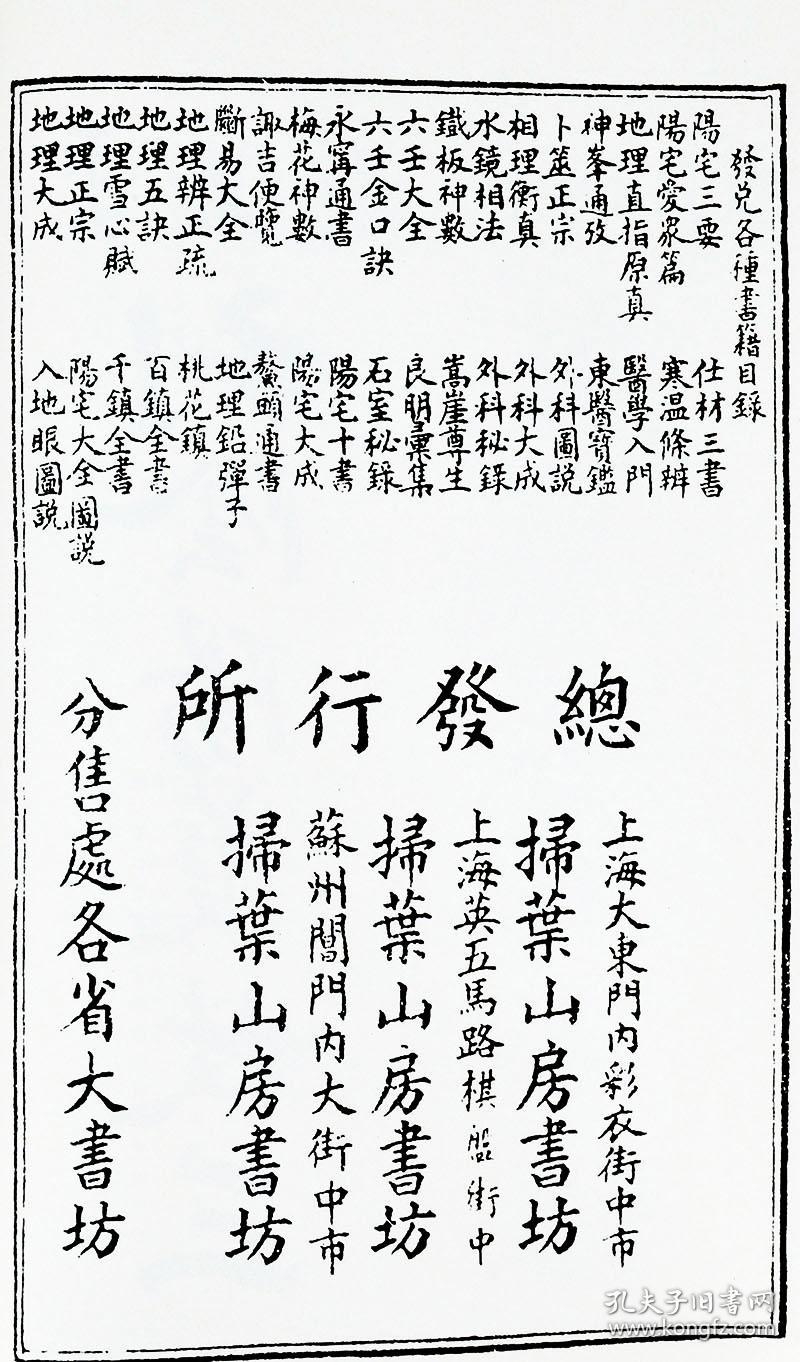 發兌各種書籍目錄
陽宅三要
陽宅愛眾篇
地理直指原真
神峯通攷
卜筮正宗
相理衡真
水鏡相法
鐵板神數
六壬大全
六壬金口訣
永寗通書
梅花神數
諏吉便覽
斷易大全
地理辨正疏
地理五訣
地理雪心賦
地理正宗
地理大成
仕材三書
寒温條辨
醫學入門
東醫寶鑑
外科圖說
外科大成
外科秘錄
嵩崖尊生
良朋彙集
石室秘錄
陽宅十書
陽宅大成
鰲頭通書
地理鉛彈子
桃花鎮
百鎮全書
千鎮全書
陽宅大全圖說
入地眼圖說
總發行所
上海大東門內彩衣街中市
掃葉山房書坊
上海英五馬路棋盤街中
掃葉山房書坊
蘇州閶門內大街中市
掃葉山房書坊
分售處各省大書坊
孔夫子旧书网
www.kongfz.com